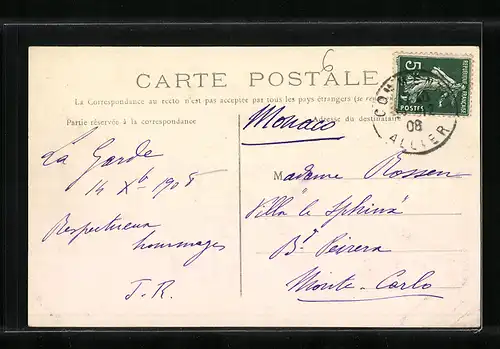 6
CARTE POSTALE
La Correspondance au recto n'est pas acceptée par tous les pays étrangers (se
Partie réservée à la correspondance
Adresse du destinataire
Monaco
5c
POSTES
REPUBLIQUE FRANÇAISE
08
ALLIER
La Garde
14 Xb 1908
Respectueux
hommages
J. R.
Madame Rossen
Villa le Sphinx
Bd Peirera
Monte-Carlo